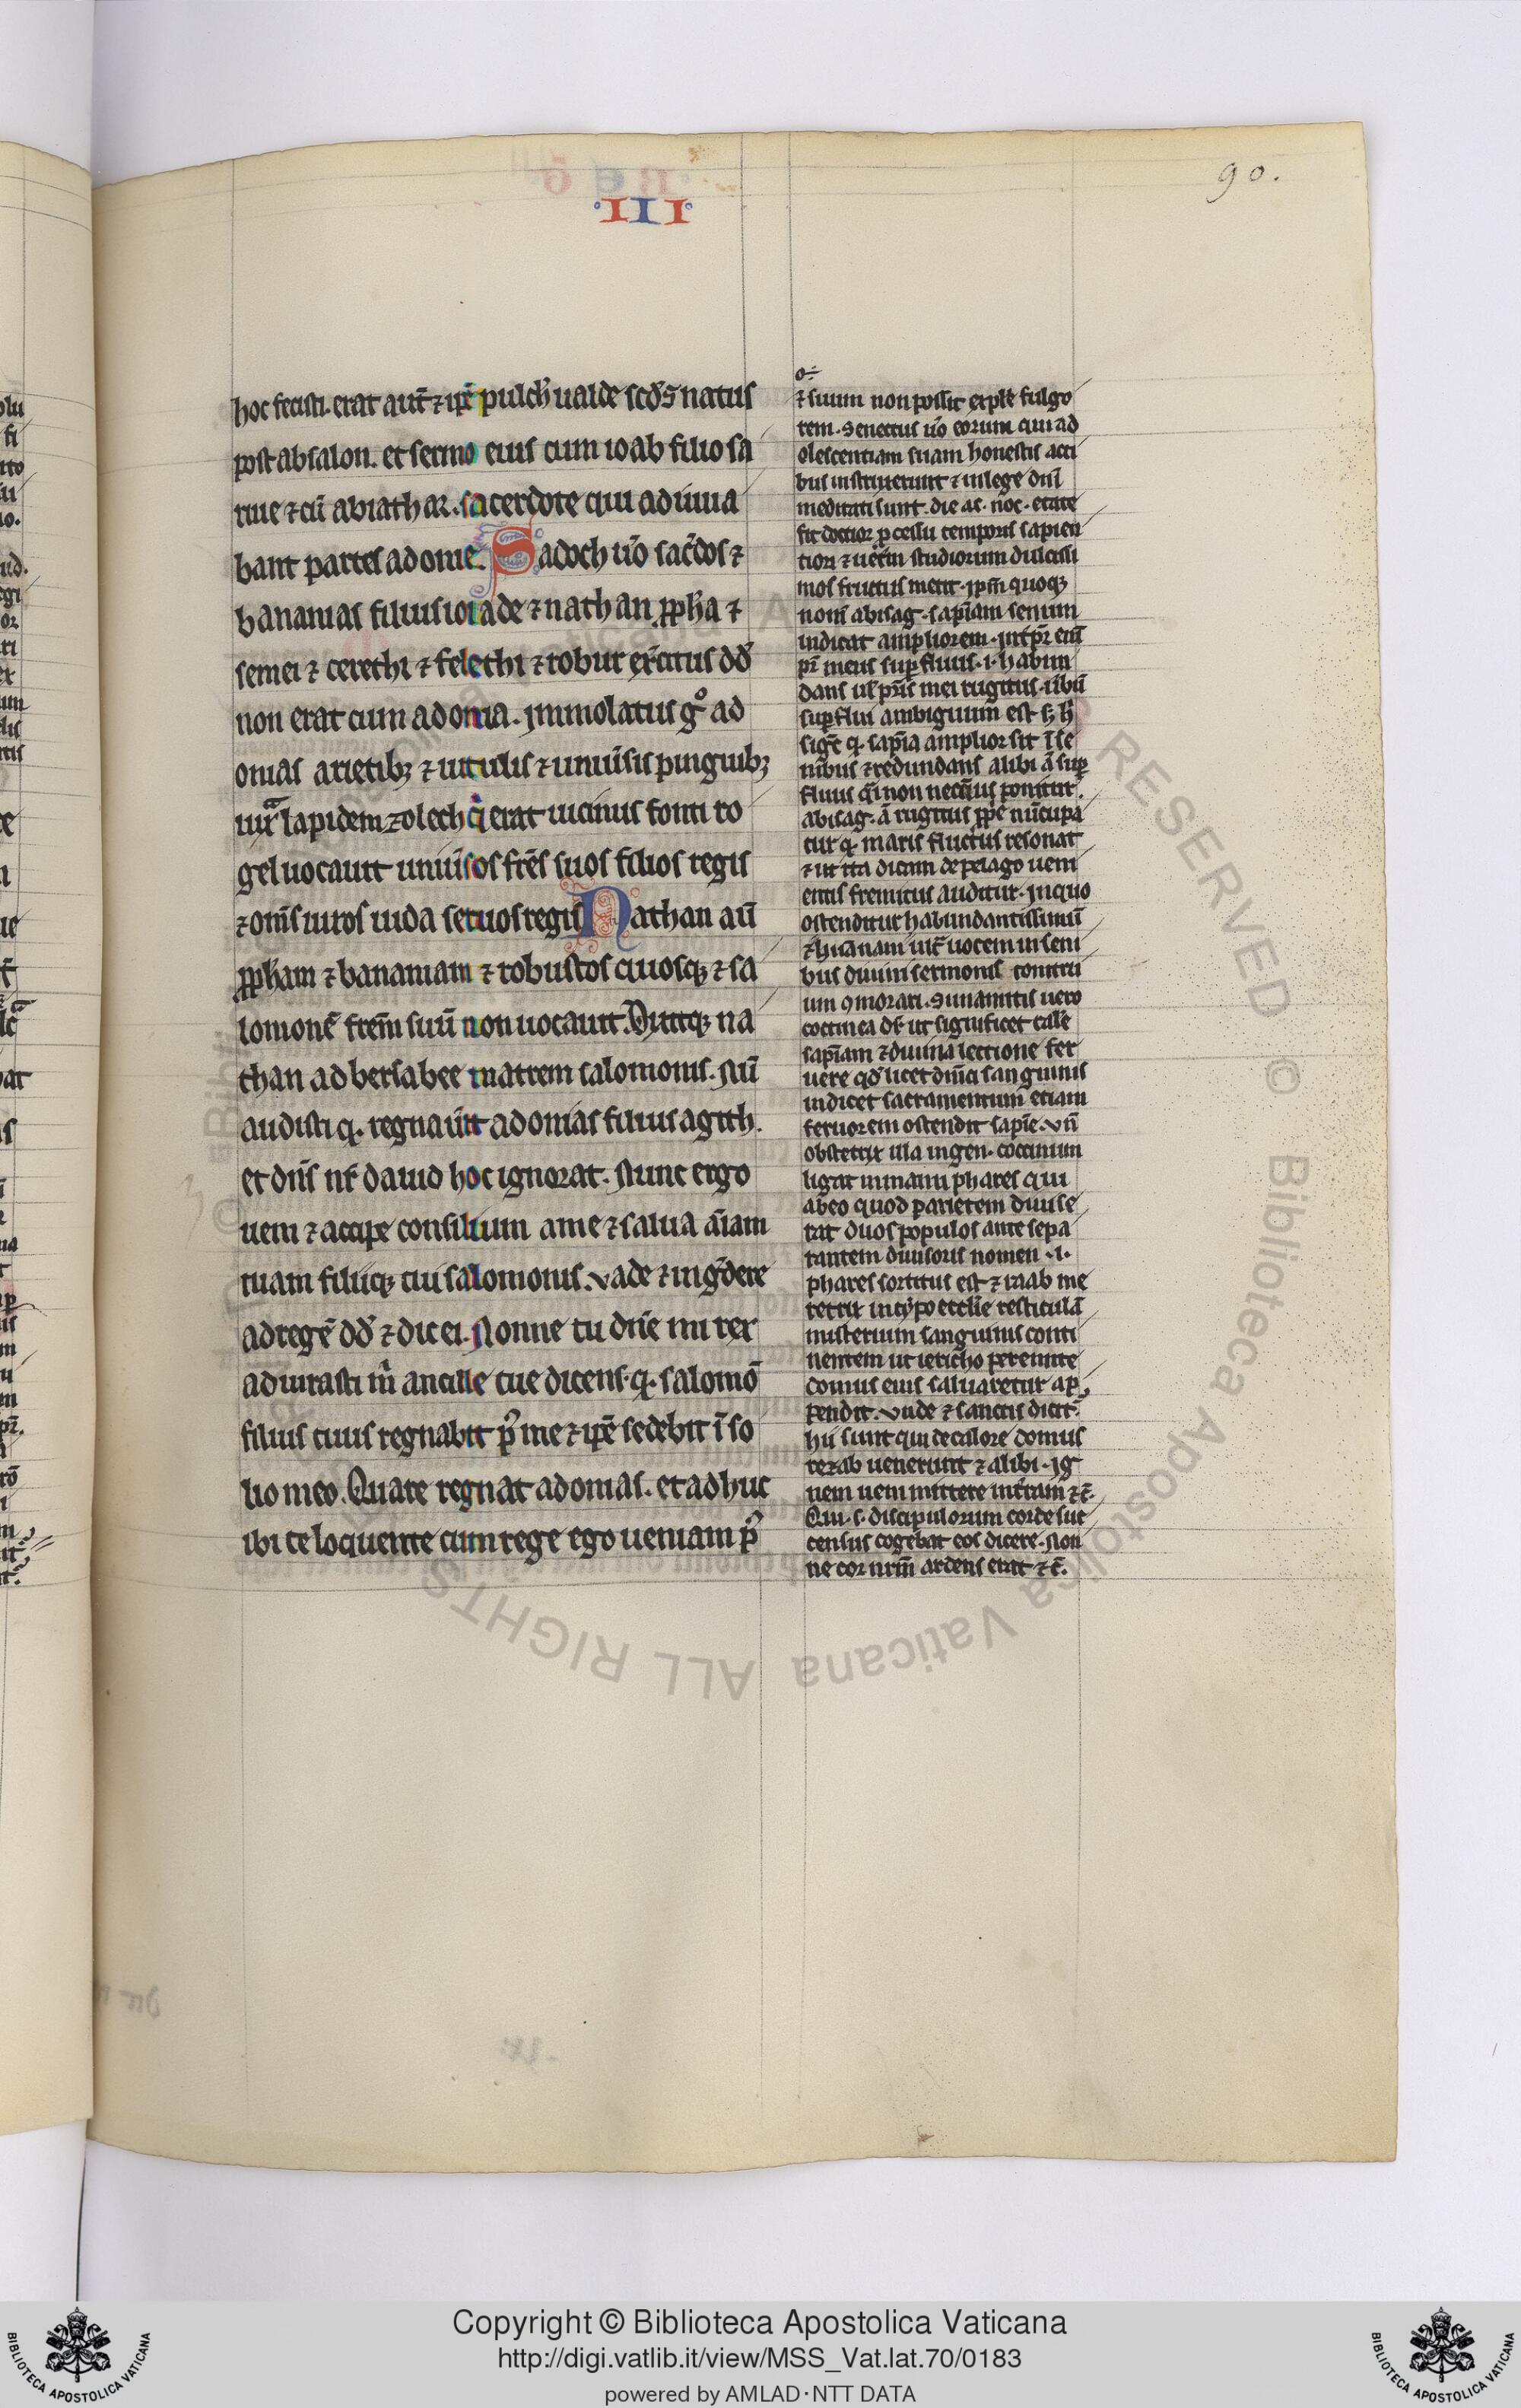 90.
·III·
hoc fecisti. erat aut̄ ⁊ ip̄e pulch̄ ualde scd̄s natus
post absalon. et sermo eius cum ioab filio sa
ruie ⁊ cū abiathar. sacerdote qui adiuua
bant partes adonie. Sadoch ūo sac̄dos ⁊
bananias filius ioiade ⁊ nathan pp̄ha ⁊
semei ⁊ cerethi ⁊ felethi ⁊ robur ex̄citus dd̄
non erat cum adonia. jmmolatis gͦ ad
onias arietibꝫ ⁊ uitulis ⁊ uniūsis pinguibꝫ
iuxͣ lapidem zolech qͥ erat uicinus fonti ro
gel uocauit uniūsos fr̄es suos filios regis
⁊ om̄s uiros iuda seruos regis Nathan aū
pp̄ham ⁊ bananiam ⁊ robustos quosqꝫ ⁊ sa
lomonē frem̄ suū non uocauit. Dixitqꝫ na
than ad bersabee matrem salomonis. Nū
audisti q̄. regnaūit adonias filius agith.
et dn̄s nr̄ dauid hoc ignorat. Nunc ergo
ueni ⁊ accipe consilium a me ⁊ salua aīam
tuam filiiqꝫ tui salomonis. vade ⁊ ingͬdere
ad regē dd̄ ⁊ dic ei. Nonne tu dn̄e mi rex
adiurasti m̄ ancille tue dicens. q̄. salomō
filius tuus regnabit p̄ me ⁊ ip̄e sedebit ī so
lio meo. Quare regnat adonias. et adhuc
ibi te loquente cum rege ego ueniam p̄
⁊ suum non possit exple fulgo
rem. Senectus ūo eorum qui ad
olescentiam suam honestis arti
bus instituerunt ⁊ in lege dn̄i
meditati sunt. die ac. noc. etate
fit doctior p̱cessu temporis sapien
tior ⁊ uet̄m studiorum dulcissi
mos fructus metit. jpm̄ quoqꝫ
nom̄ abisag. sapīam senum
indicat ampliorem. jnt̄pr̄ eni
pr̄ meus suꝑfluus. i. habun
dans ul̄ pr̄is mei rugitus. ūbū
suꝑflui ambiguum est sꝫ h̄
sigc̄ q̄. sapīa amplior sit ī se
nibus ⁊ redundans alibi ā suꝑ
fluus qī non necc̄ius ponitur.
abisag. ā rugitus pp̄e nūcupa
tur q̄ maris fluctus resonat
⁊ ut ita dicam de pelago ueni
entis fremitus auditur. jn quo
ostenditur habundantissimū
⁊ huānam ult̄ uocem in seni
bus diuini sermonis tonitru
um ꝯmorari. Sunamitis uero
coccinea dr̄ ut significet cale
sapīam ⁊ diuina lectione fer
uere qd̄ licet dn̄ici sanguinis
indicet sacramentum etiam
feruorem ostendit sapīe. vn̄
obstetrix illa in gen. coccinum
ligat in manu phares qui
ab eo quod parietem diuise
rat duos populos ante sepa
rantem diuisoris nomen .i.
phares sortitus est ⁊ raab me
retrix in typo eccl̄ie resticulā
misterium sanguinis conti
nentem ut iericho pereunte
domus eius saluaretur ap
pendit. vnde ⁊ sanctis dicit.
hii sunt qui de calore domus
rezab uenerunt ⁊ alibi. jg
nem ueni mittere in t̄ram ⁊c̄.
Qui .s. discipulorum corde suc
census cogebat eos dicere. Non
ne cor nr̄m ardens erat ⁊c̄.
Copyright © Biblioteca Apostolica Vaticana
http://digi.vatlib.it/view/MSS_Vat.lat.70/0183
powered by AMLAD·NTT DATA
BIBLIOTECA APOSTOLICA VATICANA
BIBLIOTECA APOSTOLICA VATICANA
© Biblioteca Apostolica Vaticana ALL RIGHTS RESERVED